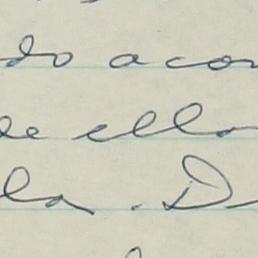 do acor
de ella
la. D